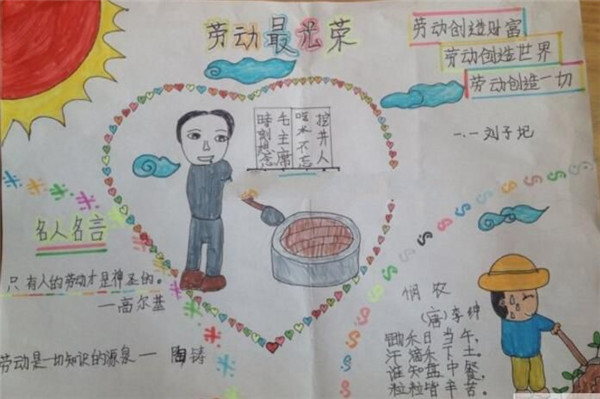 劳动最光荣
劳动创造财富
劳动创造世界
劳动创造一切
一.一刘子圯
吃水不忘
挖井人
時刻想念
毛主席
名人名言
只有人的劳动才是神圣的。
—高尔基
劳动是一切知识的源泉— 陶铸
悯农
(唐)李绅
锄禾日当午,
汗滴禾下土。
谁知盘中餐,
粒粒皆辛苦。